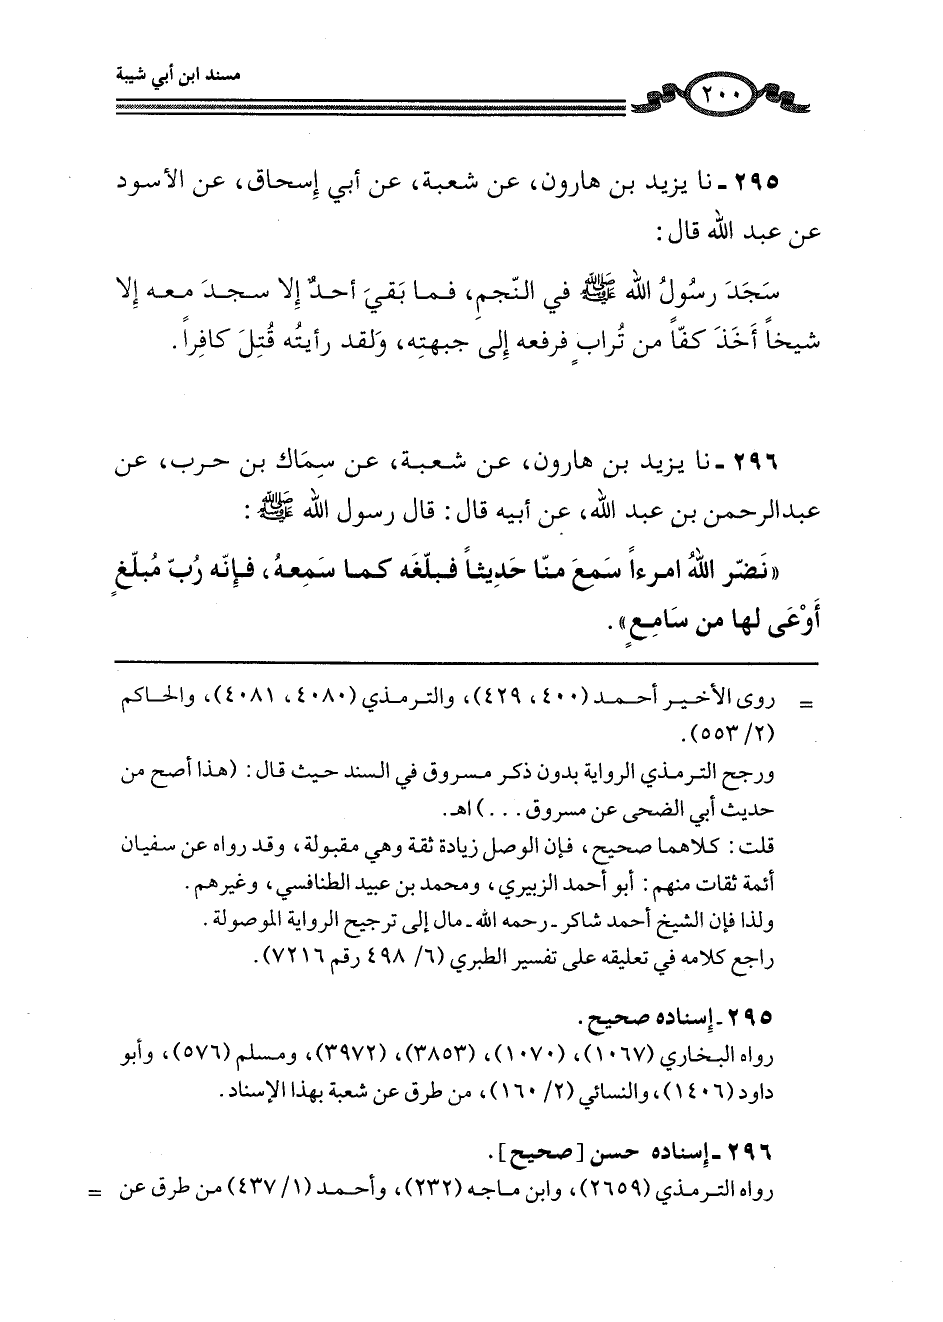 مسند ابن أبي شيبة
٢٠٠
٢٩٥ ـ نا يزيد بن هارون، عن شعبة، عن أبي إسحاق، عن الأسود
عن عبد الله قال:
سَجَدَ رسُولُ الله ﷺ في النّجمِ، فما بَقيَ أحدٌ إلا سجدَ معه إلا
شيخاً أَخَذَ كفّاً من تُرابٍ فرفعه إلى جبهتِه، وَلقد رأيتُه قُتِلَ كافِراً.
٢٩٦ ـ نا يزيد بن هارون، عن شعبة، عن سِمَاك بن حرب، عن
عبدالرحمن بن عبد الله، عن أبيه قال: قال رسول الله ﷺ:
«نَضّر اللهُ امرءاً سَمِعَ منّا حَدِيثاً فبلّغَه كما سَمِعهُ، فإنّه رُبّ مُبلّغٍ
أَوْعَى لها من سَامِعٍ».
= روى الأخير أحمد (٤٠٠، ٤٢٩)، والترمذي (٤٠٨٠، ٤٠٨١)، والحاكم
(٢/ ٥٥٣).
ورجح الترمذي الرواية بدون ذكر مسروق في السند حيث قال: (هذا أصح من
حديث أبي الضحى عن مسروق . . .) اهـ.
قلت: كلاهما صحيح، فإن الوصل زيادة ثقة وهي مقبولة، وقد رواه عن سفيان
أئمة ثقات منهم: أبو أحمد الزبيري، ومحمد بن عبيد الطنافسي، وغيرهم.
ولذا فإن الشيخ أحمد شاكر ـ رحمه الله ـ مال إلى ترجيح الرواية الموصولة.
راجع كلامه في تعليقه على تفسير الطبري (٦/ ٤٩٨ رقم ٧٢١٦).
٢٩٥ ـ إسناده صحيح.
رواه البخاري (١٠٦٧)، (١٠٧٠)، (٣٨٥٣)، (٣٩٧٢)، ومسلم (٥٧٦)، وأبو
داود (١٤٠٦)، والنسائي (٢/ ١٦٠)، من طرق عن شعبة بهذا الإسناد.
٢٩٦ ـ إسناده حسن [صحيح].
رواه الترمذي (٢٦٥٩)، وابن ماجه (٢٣٢)، وأحمد (١/ ٤٣٧) من طرق عن =